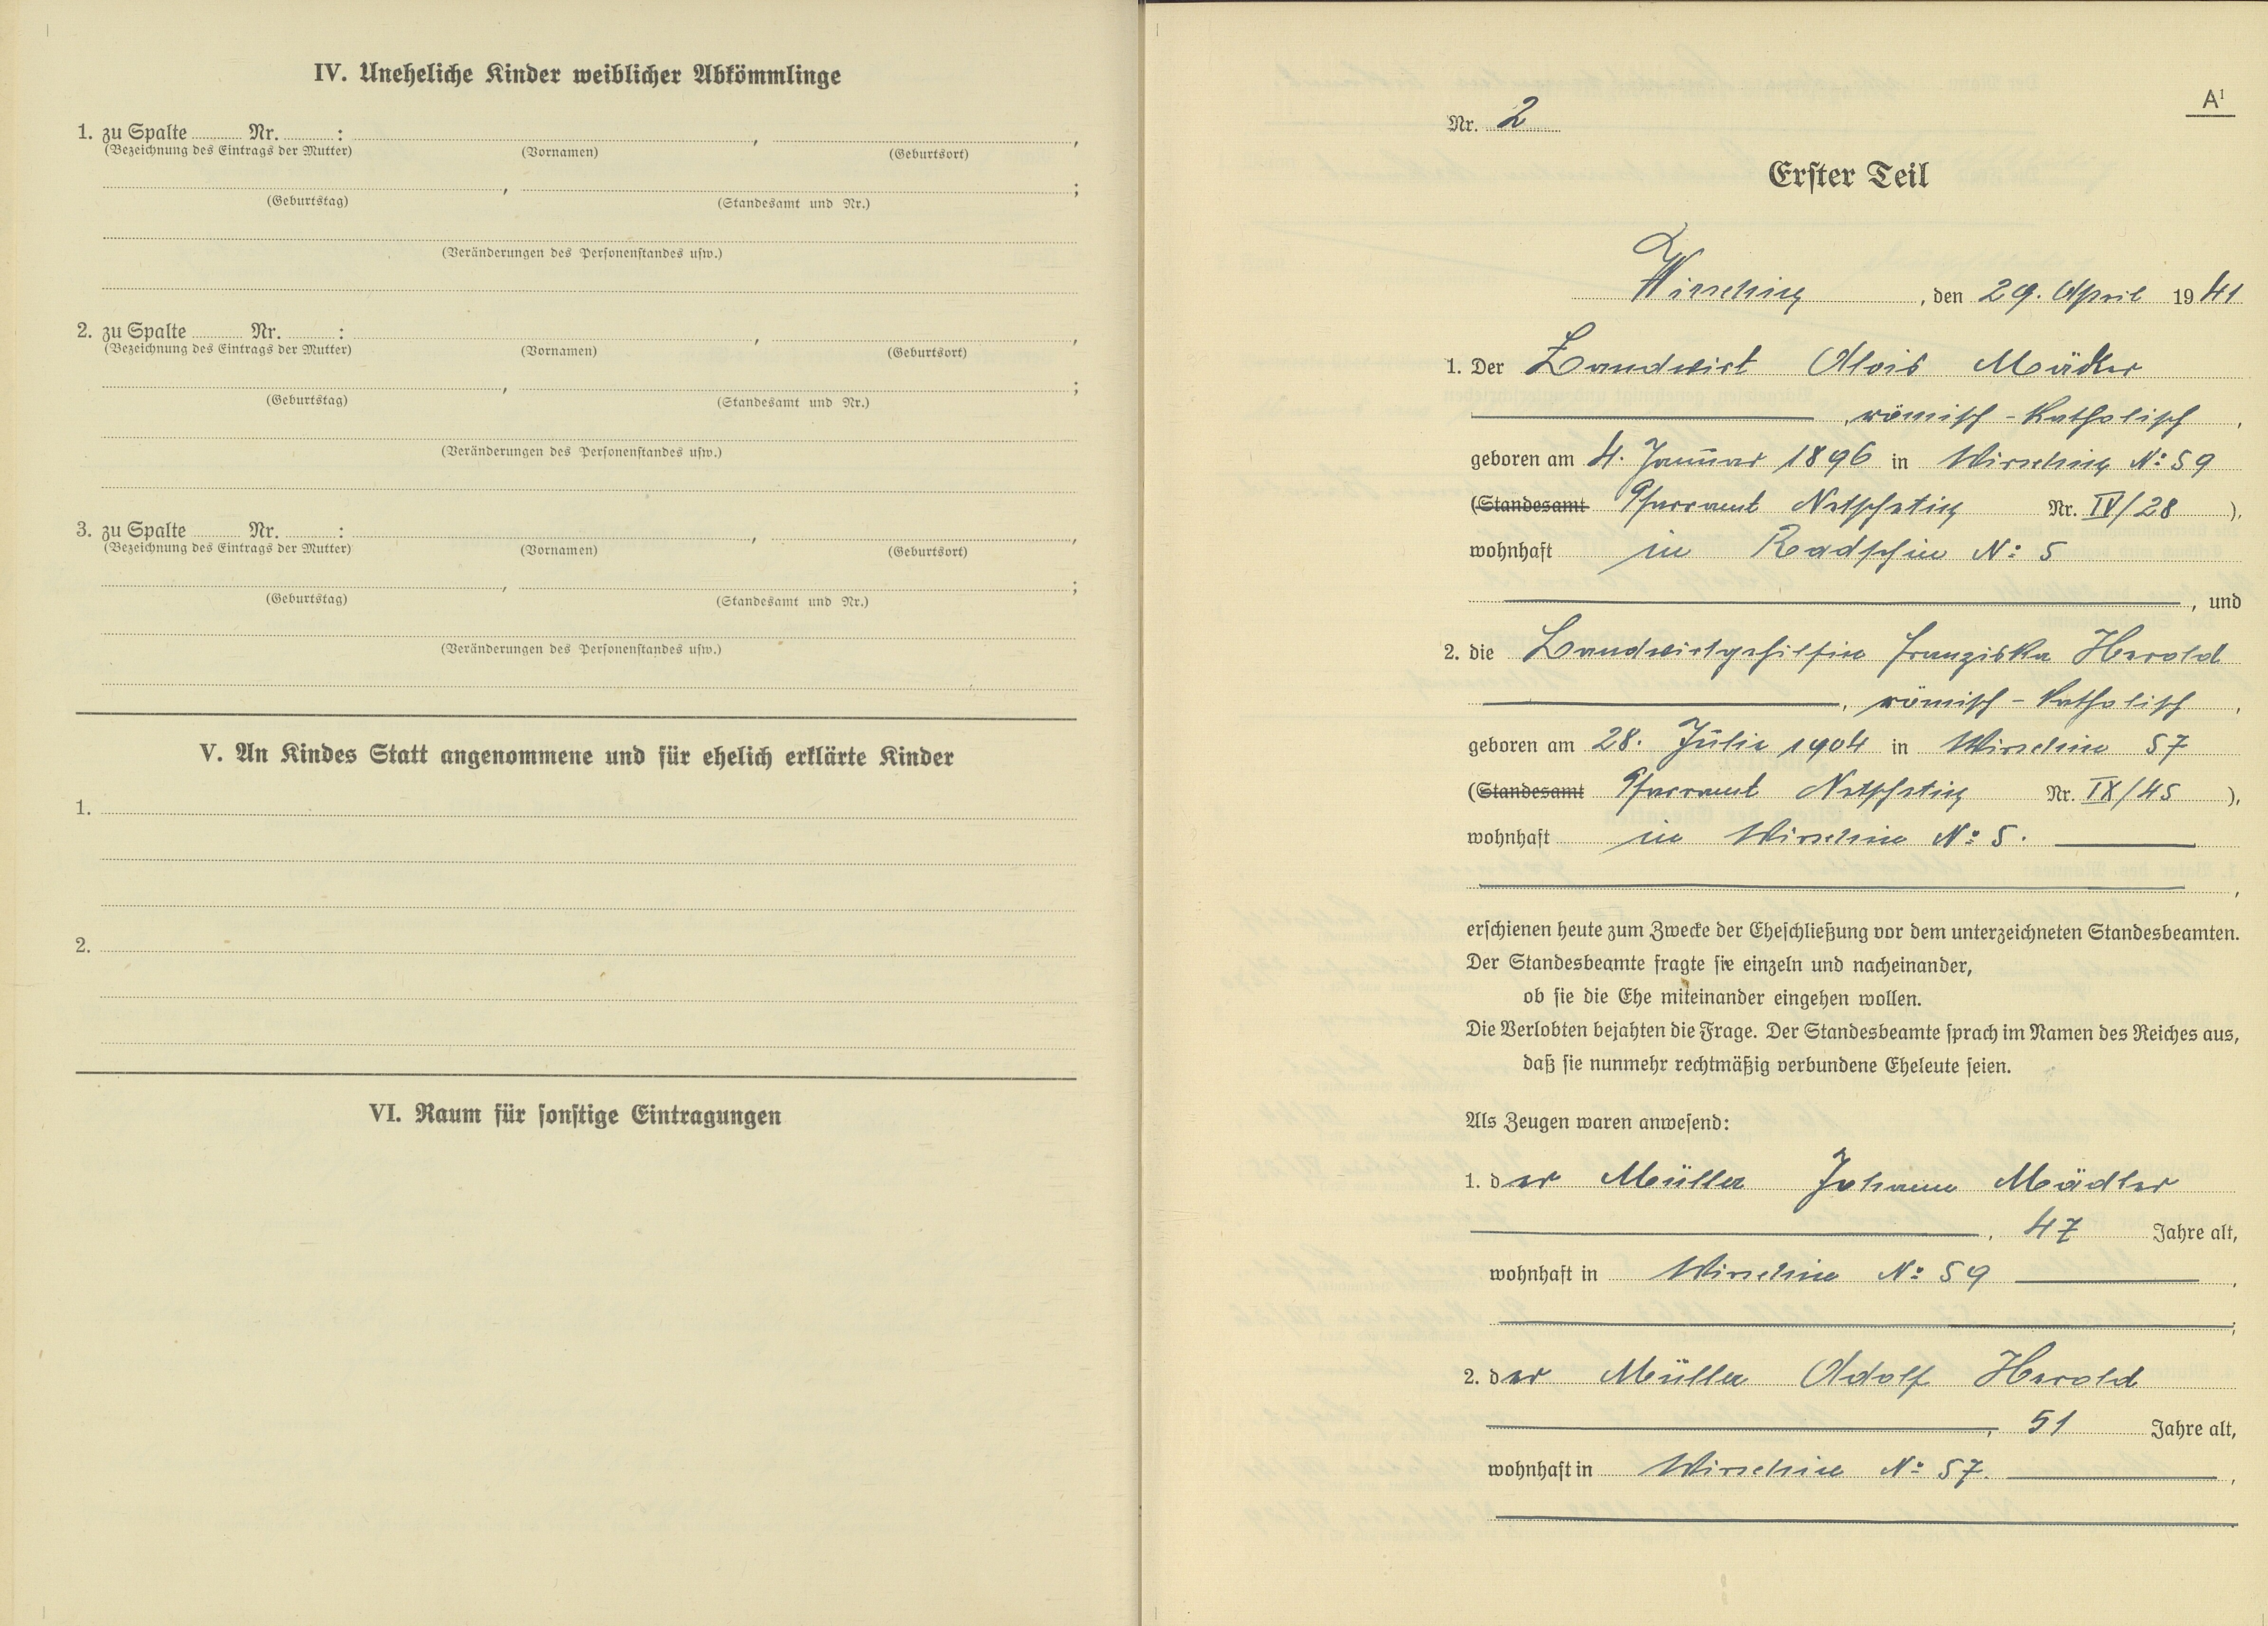 IV. Uneheliche Kinder weiblicher Abkömmlinge
1. zu Spalte ........ Nr. ........ : ........ , ........ ,
(Bezeichnung des Eintrags der Mutter) (Vornamen) (Geburtsort)
........ , ........ ;
(Geburtstag) (Standesamt und Nr.)
(Veränderungen des Personenstandes usw.)
2. zu Spalte ........ Nr. ........ : ........ , ........ ,
(Bezeichnung des Eintrags der Mutter) (Vornamen) (Geburtsort)
........ , ........ ;
(Geburtstag) (Standesamt und Nr.)
(Veränderungen des Personenstandes usw.)
3. zu Spalte ........ Nr. ........ : ........ , ........ ,
(Bezeichnung des Eintrags der Mutter) (Vornamen) (Geburtsort)
........ , ........ ;
(Geburtstag) (Standesamt und Nr.)
(Veränderungen des Personenstandes usw.)
V. An Kindes Statt angenommene und für ehelich erklärte Kinder
1.
2.
VI. Raum für sonstige Eintragungen
A¹
Nr. 2
Erster Teil
, den 29. April 1941
1. Der Landwirt Alois Mädler
, römisch-katholisch ,
geboren am 4. Januar 1896 in Wirschin No 59
(Standesamt Pfarramt Netschetin Nr. IV/28 ),
wohnhaft in Radschin No 5
, und
2. die Landwirtgehilfin Franziska Herold
, römisch-katholisch ,
geboren am 28. Juli 1904 in Wirschin 57
(Standesamt Pfarramt Netschetin Nr. IX/45 ),
wohnhaft in Wirschin No 5.
,
erschienen heute zum Zwecke der Eheschließung vor dem unterzeichneten Standesbeamten.
Der Standesbeamte fragte sie einzeln und nacheinander,
ob sie die Ehe miteinander eingehen wollen.
Die Verlobten bejahten die Frage. Der Standesbeamte sprach im Namen des Reiches aus,
daß sie nunmehr rechtmäßig verbundene Eheleute seien.
Als Zeugen waren anwesend:
1. der Müller Johann Mädler
, 47 Jahre alt,
wohnhaft in Wirschin No 59 ,
;
2. der Müller Adolf Herold
, 51 Jahre alt,
wohnhaft in Wirschin No 57. ,